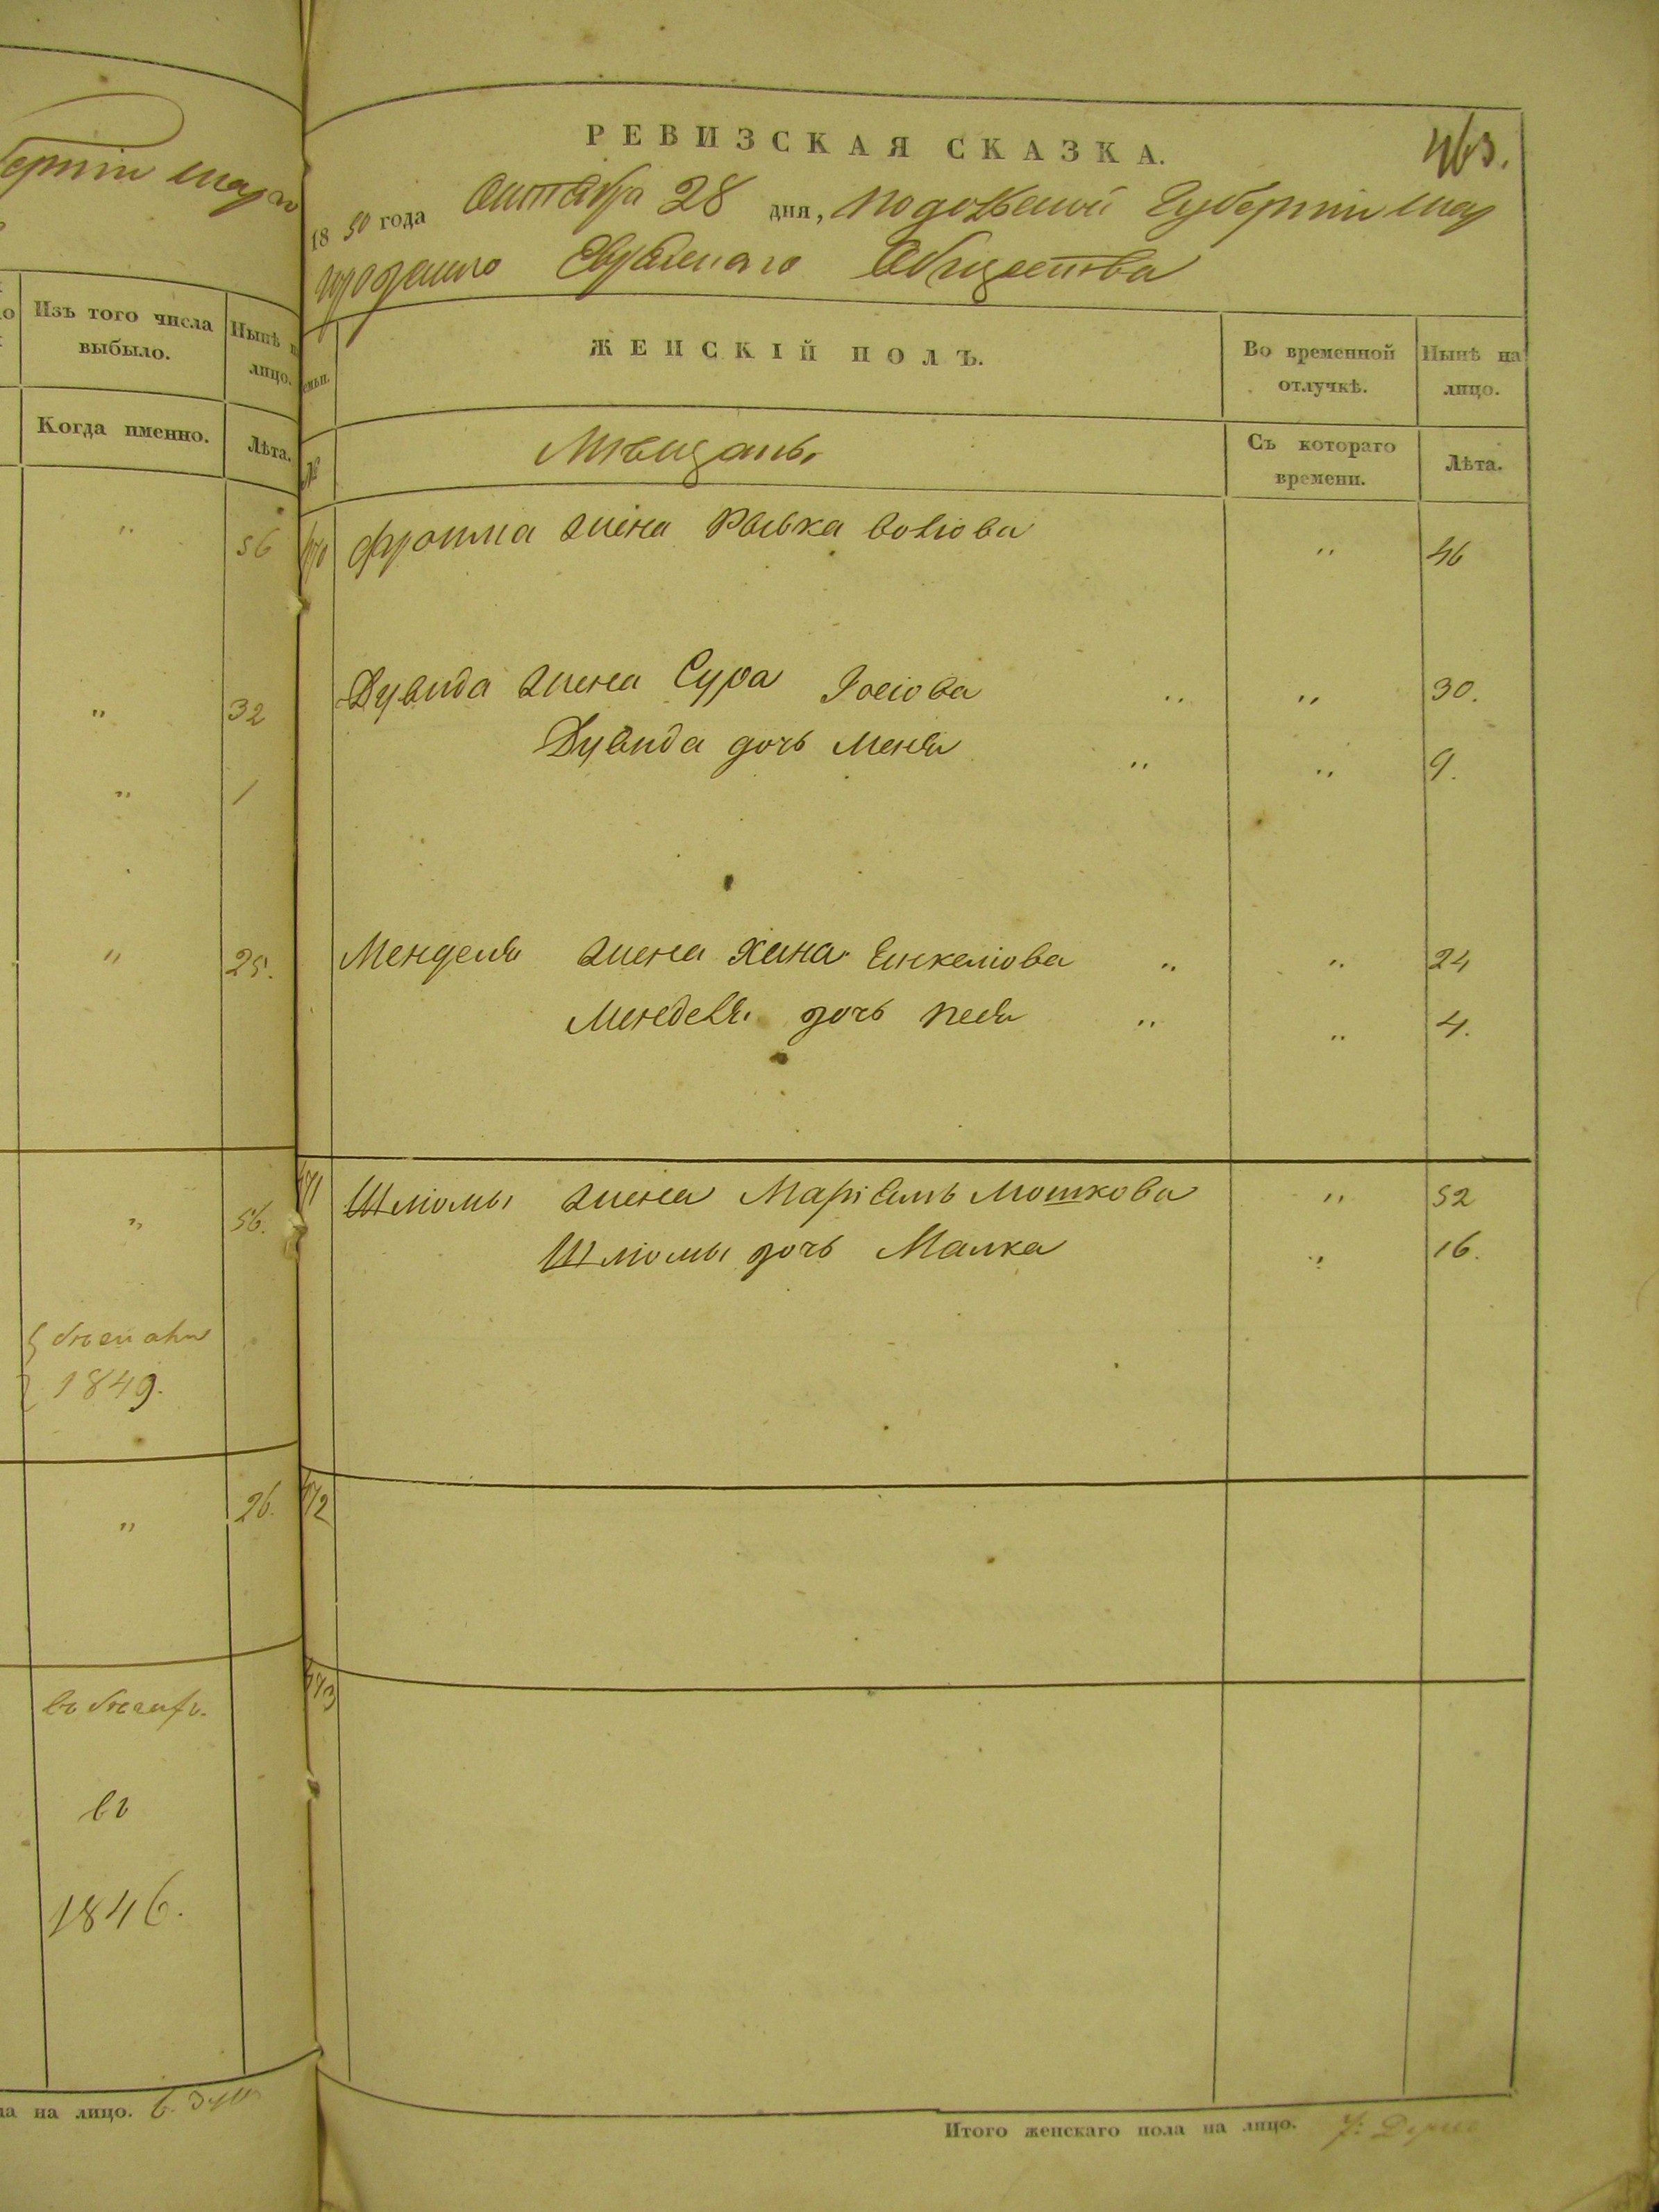 Изъ того числа
выбыло.
Нынѣ н
лицо.
Когда именно.
Лѣта.
" 56
" 32
" 1
" 25.
" 56.
1849.
" 26.
въ
1846.
на лицо.
463.
РЕВИЗСКАЯ СКАЗКА.
1850 года Октября 28 дня, Подольской Губерніи Шар
городскаго Еврейскаго Общества
ЖЕНСКІЙ ПОЛЪ.
Во временной
отлучкѣ.
Нынѣ на
лицо.
№
Мѣщане
Съ котораго
времени.
Лѣта.
470 Фроима жена Рывка Волiова " 46
Дувида жена Сура Iосiова " " 30.
Дувида дочь Меня " " 9.
Менделя жена Хана Енкелiова " " 24
Менделя дочь Песя " " 4.
471 Шлiомы жена Марiамъ Мошкова " 52
Шлiомы дочь Малка " 16.
472
473
Итого женскаго пола на лицо. 7: